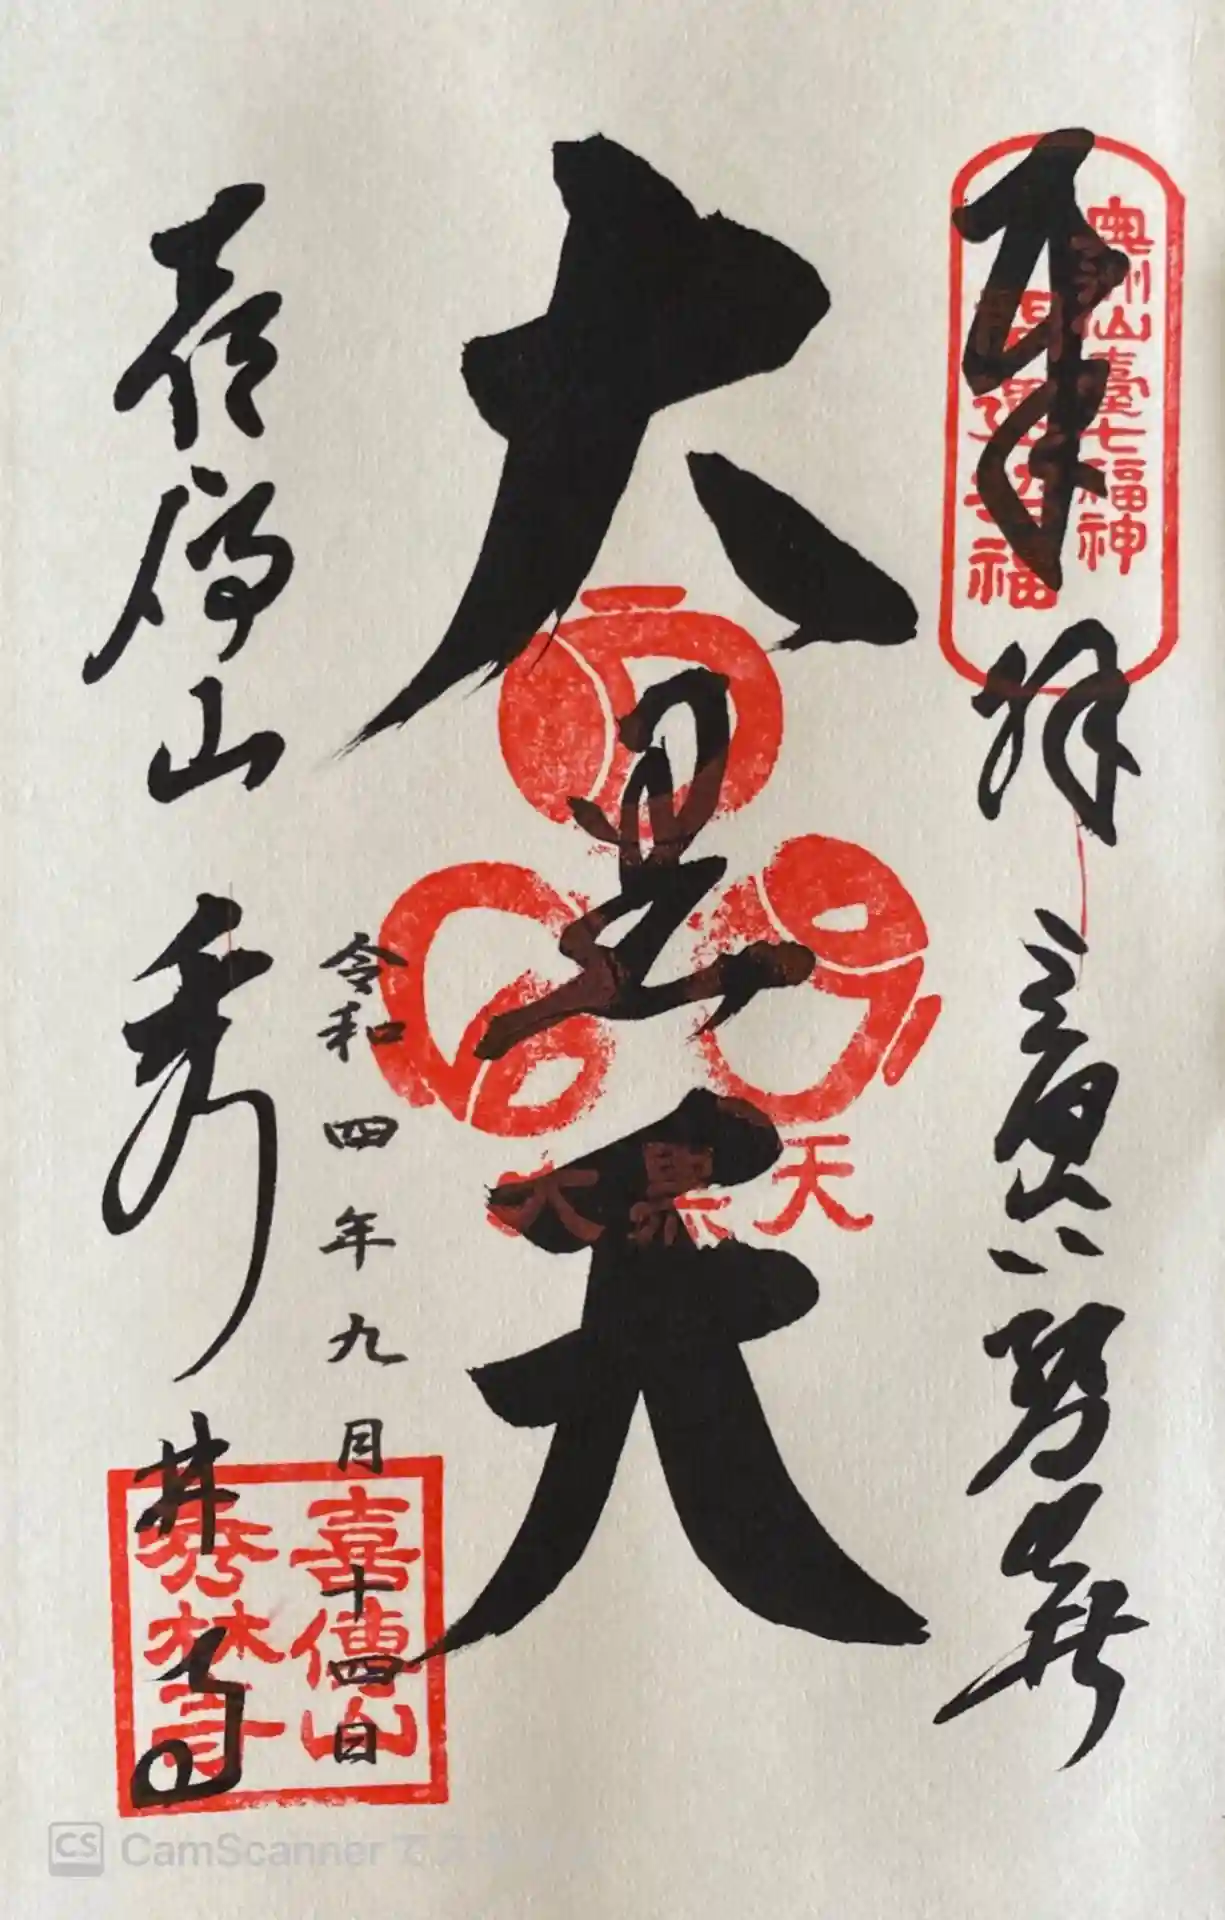 奥州仙臺七福神
開運招福
奉拝
大黒天
大黒天
令和四年九月十四日
喜傳山 秀林寺
喜傳山
秀林寺
CamScanner